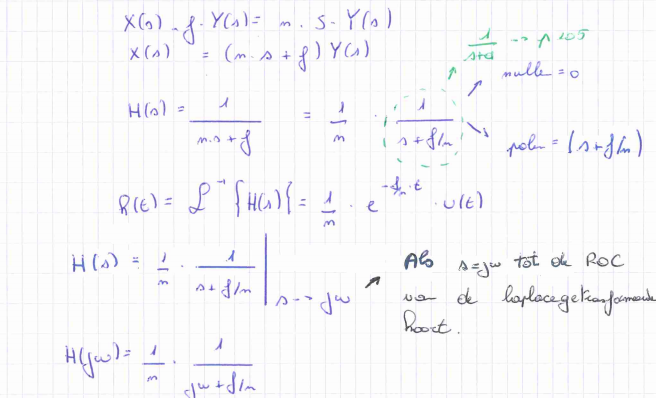 X(s) - f · Y(s) = m · s · Y(s)
X(s) = (m · s + f) Y(s)
1/(s+a) → p 105
nulle = 0
H(s) = 1/(m·s + f) = 1/m · 1/(s + f/m)
polen = (s + f/m)
h(t) = ℒ⁻¹ {H(s)} = 1/m · e^(-f/m · t) · u(t)
H(s) = 1/m · 1/(s + f/m) |s → jω
Als s=jω tot de ROC
van de laplacegetransformeerde
hoort.
H(jω) = 1/m · 1/(jω + f/m)